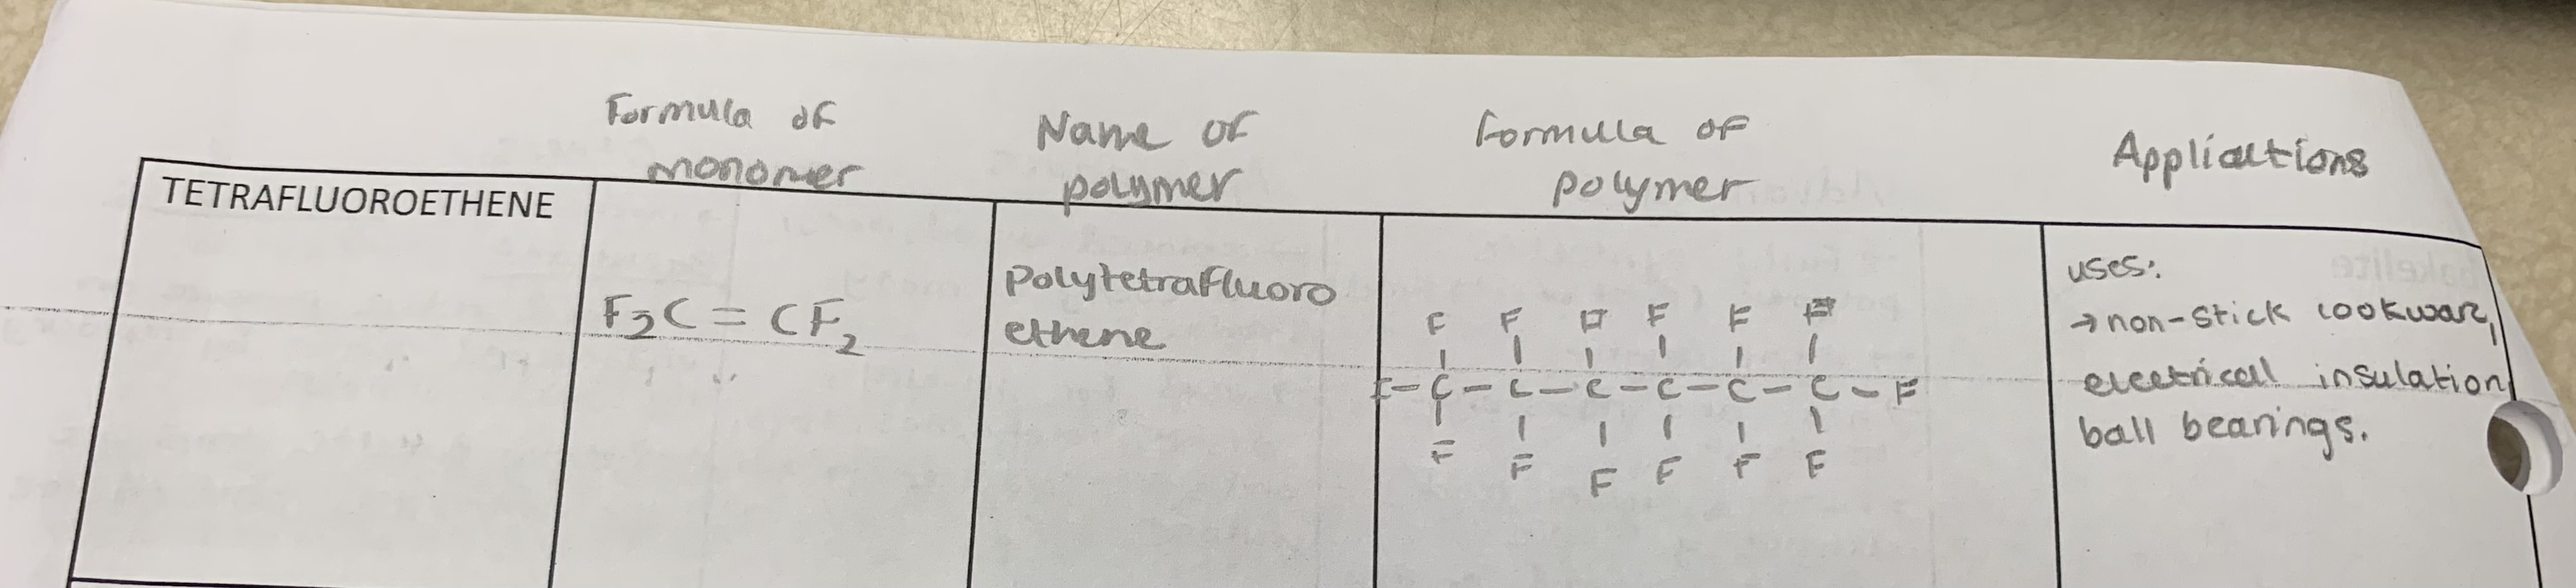 Formula of
monomer
Name of
polymer
Formula of
polymer
Applications
TETRAFLUOROETHENE
F₂C = CF₂
Polytetrafluoro
ethene
F F F F F F
F-C-C-C-C-C-C-F
F F F F F F
uses:
→ non-stick cookware,
electrical insulation
ball bearings.